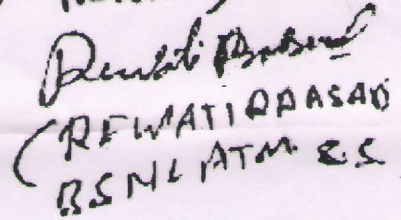 Rewati Prasad
(REWATI PRASAD
BSNL ATM S.S